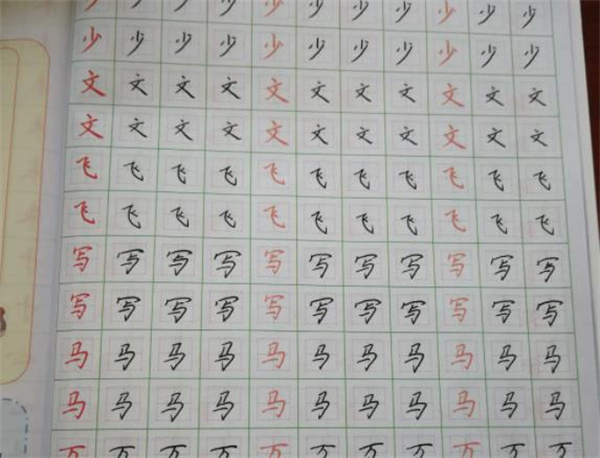 少少少少少少少少少少少
少少少少少少少少少少少
文文文文文文文文文文文
文文文文文文文文文文文
飞飞飞飞飞飞飞飞飞飞飞
飞飞飞飞飞飞飞飞飞飞飞
写写写写写写写写写写写
写写写写写写写写写写写
马马马马马马马马马马马
马马马马马马马马马马马
万万万万万万万万万万万